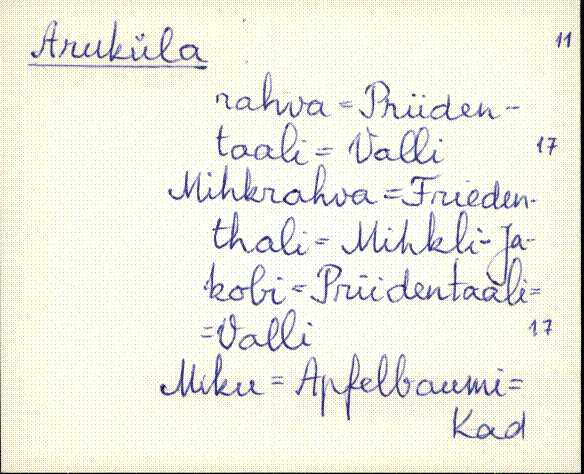 Aruküla 11
rahva = Priiden-
taali = Valli 17
Mihkrahva = Frieden-
thali = Mihkli-Ja-
kobi = Priidentaali=
=Valli 17
Miku = Apfelbaumi=
Kad